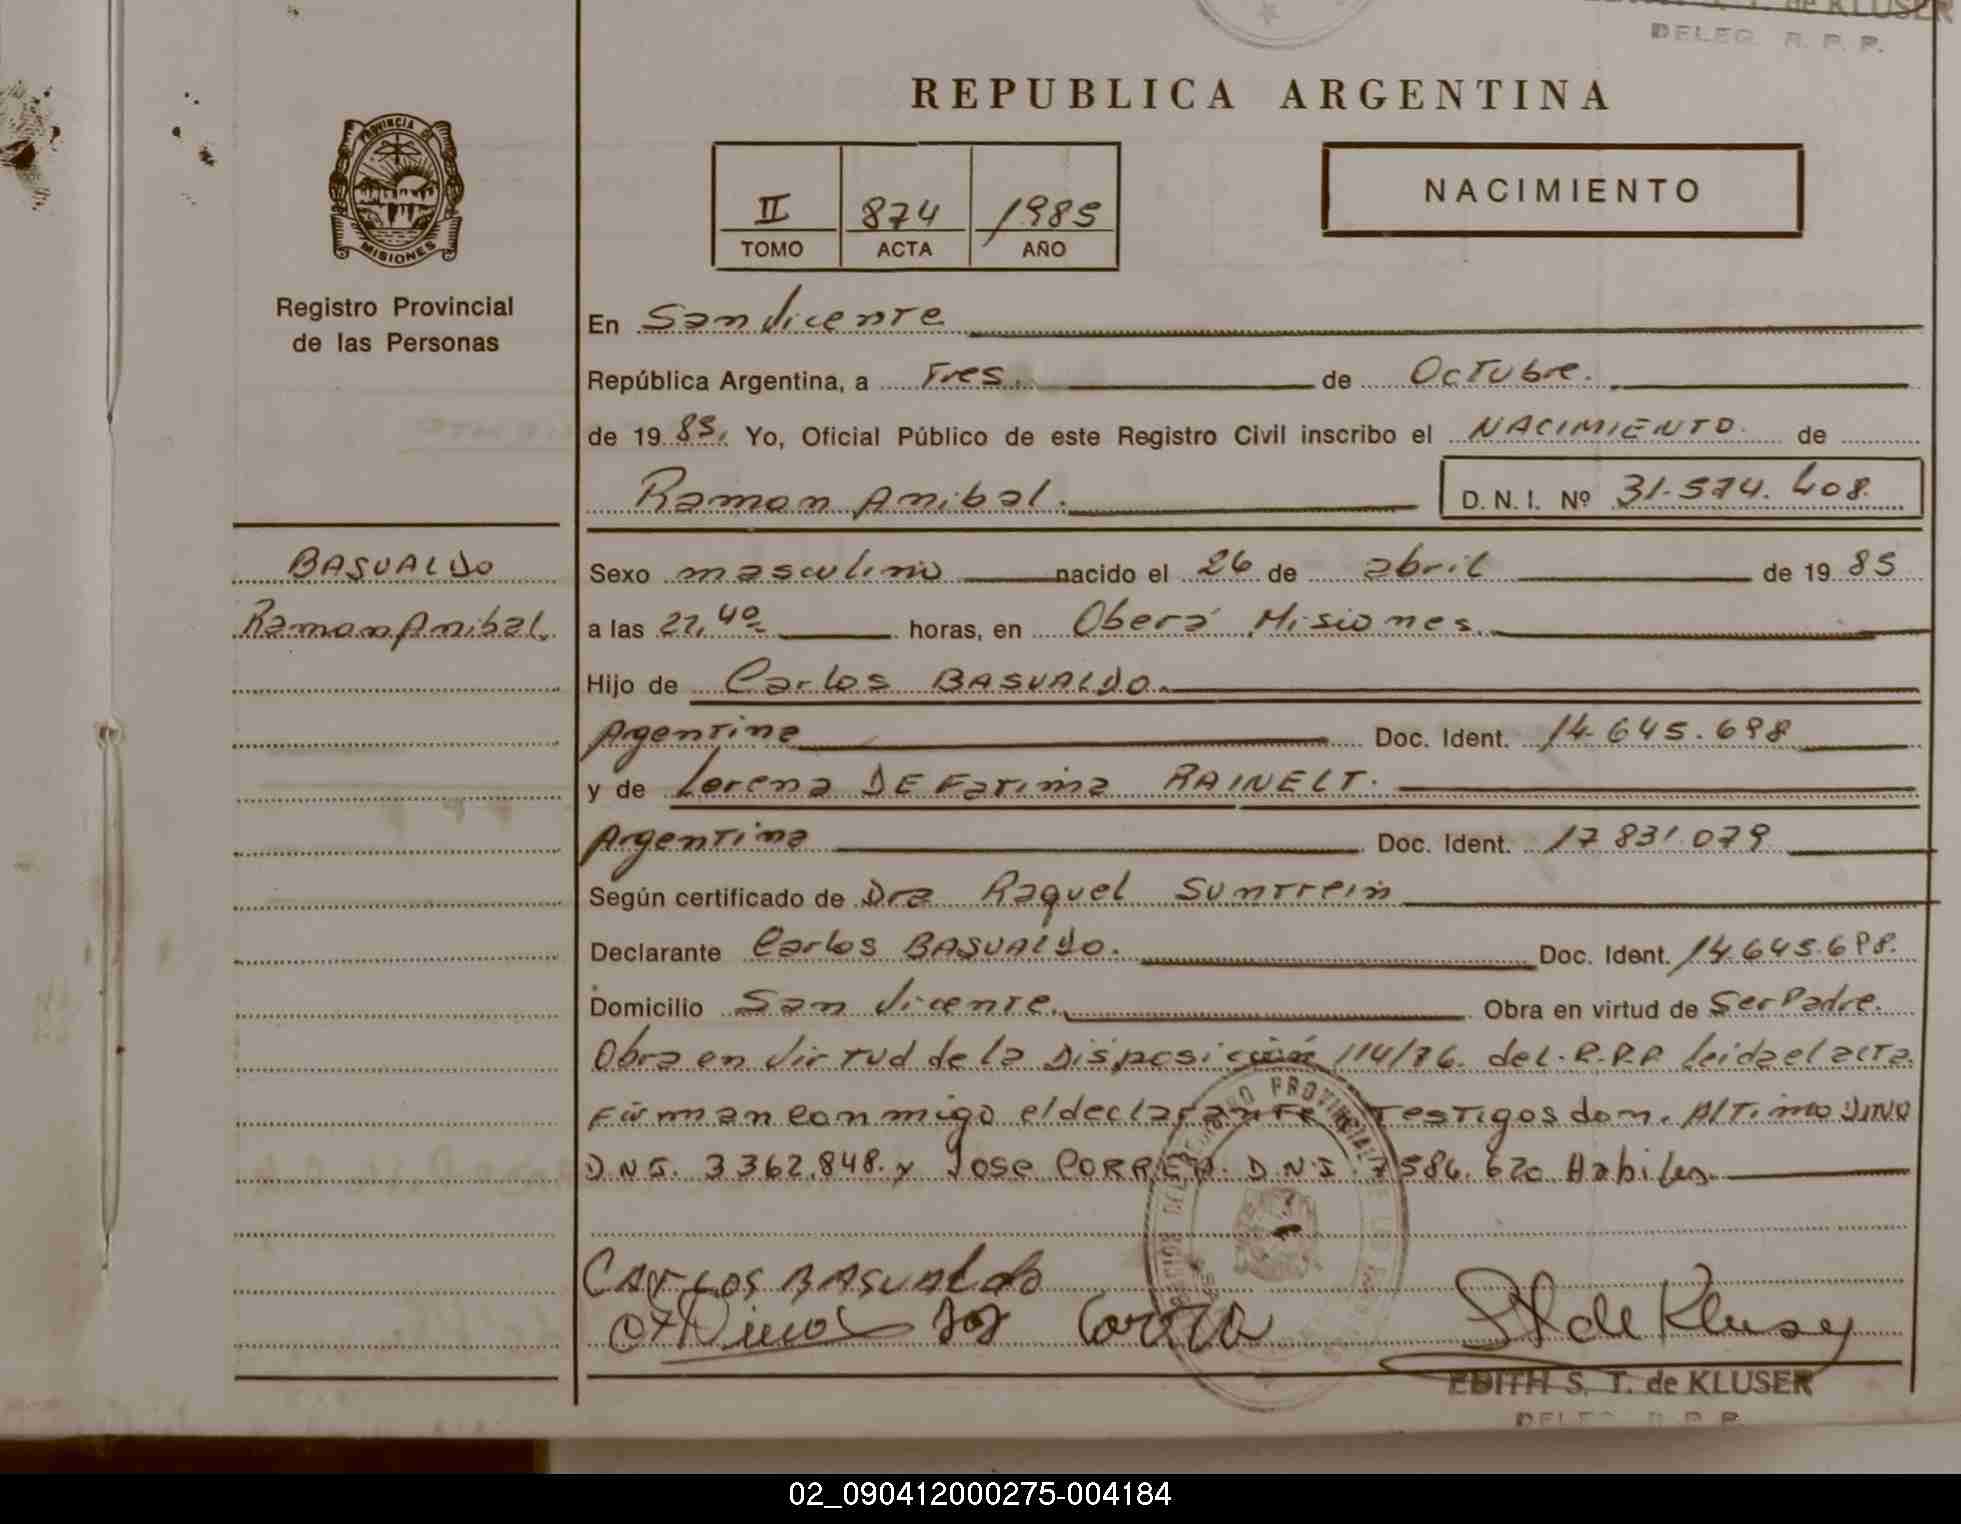 de KLUSER
DELEG. R. P. P.
REPUBLICA ARGENTINA
PROVINCIA DE
MISIONES
Registro Provincial
de las Personas
II 874 1985
TOMO ACTA AÑO
NACIMIENTO
En San Vicente
República Argentina, a Tres. de Octubre.
de 19 85. Yo, Oficial Público de este Registro Civil inscribo el NACIMIENTO de
Ramon Anibal. D. N. I. Nº 31.574.408.
BASUALDO
Ramon Anibal.
Sexo masculino nacido el 26 de abril de 19 85
a las 22,40 horas, en Oberá Misiones.
Hijo de Carlos BASUALDO.
Argentina Doc. Ident. 14.645.698
y de Lorena DE Fatima RAINELT.
Argentina Doc. Ident. 17.831.079
Según certificado de Dra Raquel Suntrein
Declarante Carlos BASUALDO. Doc. Ident. 14.645.698.
Domicilio San Vicente. Obra en virtud de Ser Padre.
Obra en Virtud de la Disposición 114/76. del. R.P.P. leida el acta.
Firman conmigo el declarante Testigos don. ALTimo DINO
D.N.I. 3362.848. y Jose CORREA. D.N.I. 7.586.620 Habiles.
CARLOS BASUALdo
Dino Jos Correa S T de Kluser
EDITH S. T. de KLUSER
DELEG. R. P. P.
02_090412000275-004184